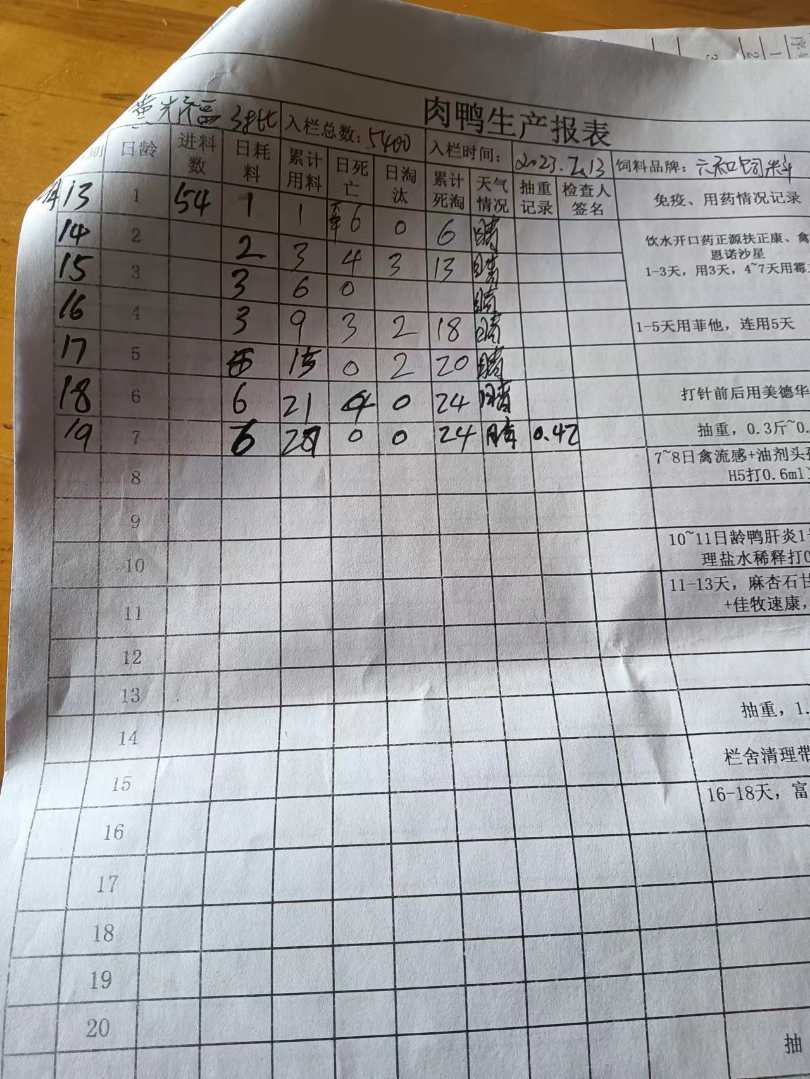 肉鸭生产报表
入栏总数：5400 入栏时间：2023.7.13 饲料品牌：六和饲料
期 日龄 进料数 日耗料 累计用料 日死亡 日淘汰 累计死淘 天气情况 抽重记录 检查人签名 免疫、用药情况记录
13 1 54 1 1 6 0 6 晴
14 2 2 3 4 3 13 晴 饮水开口药正源扶正康、禽
恩诺沙星
15 3 3 6 0 晴 1-3天，用3天，4~7天用霉
16 4 3 9 3 2 18 晴 1-5天用菲他，连用5天
17 5 15 0 2 20 晴
18 6 6 21 4 0 24 晴 打针前后用美德华
19 7 6 27 0 0 24 晴 0.42 抽重，0.3斤~0.
8 7~8日禽流感+油剂头孢
H5打0.6ml
9
10 10~11日龄鸭肝炎1
理盐水稀释打0
11 11-13天，麻杏石甘
+佳牧速康，
12
13
14 抽重，1.
15 栏舍清理带
16 16-18天，富
17
18
19
20
抽